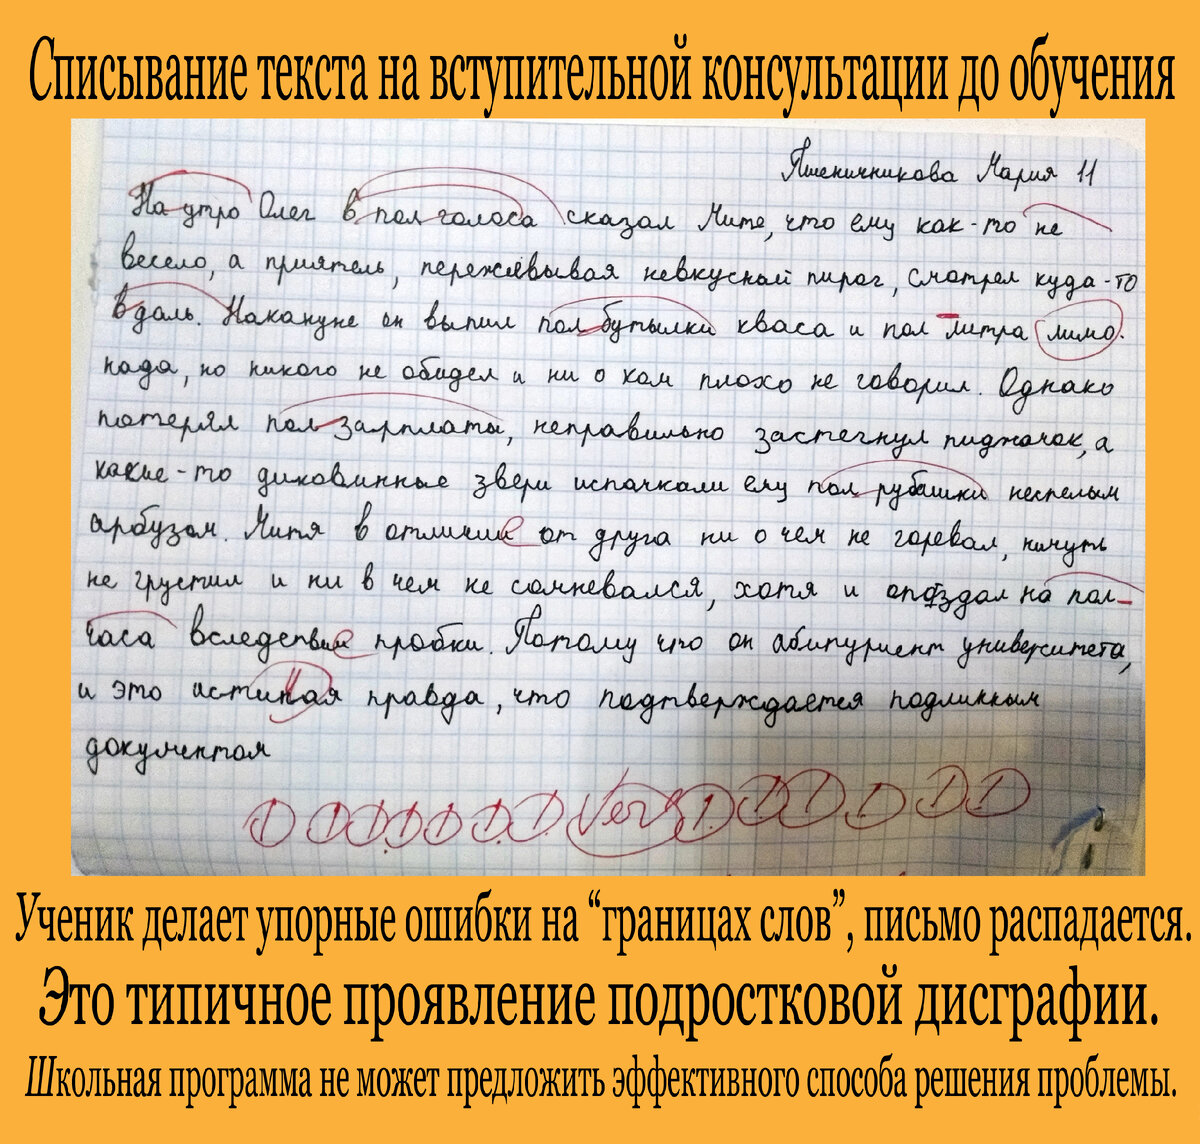 Списывание текста на вступительной консультации до обучения
Пшеничникова Мария 11
На утро Олег в пол голоса сказал Мите, что ему как-то не
весело, а приятель, пережёвывая невкусный пирог, смотрел куда-то
в даль. Накануне он выпил пол бутылки кваса и пол литра лимо-
нада, но никого не обидел и ни о ком плохо не говорил. Однако
потерял пол зарплаты, неправильно застегнул пиджачок, а
какие-то диковинные звери испачкали ему пол рубашки неспелым
арбузом. Митя в отличии от друга ни о чем не горевал, ничуть
не грустил и ни в чем не сомневался, хотя и опоздал на пол-
часа вследствии пробки. Потому что он абитуриент университета,
и это истиная правда, что подтверждается подлинным
документом
Ученик делает упорные ошибки на “границах слов”, письмо распадается.
Это типичное проявление подростковой дисграфии.
Школьная программа не может предложить эффективного способа решения проблемы.